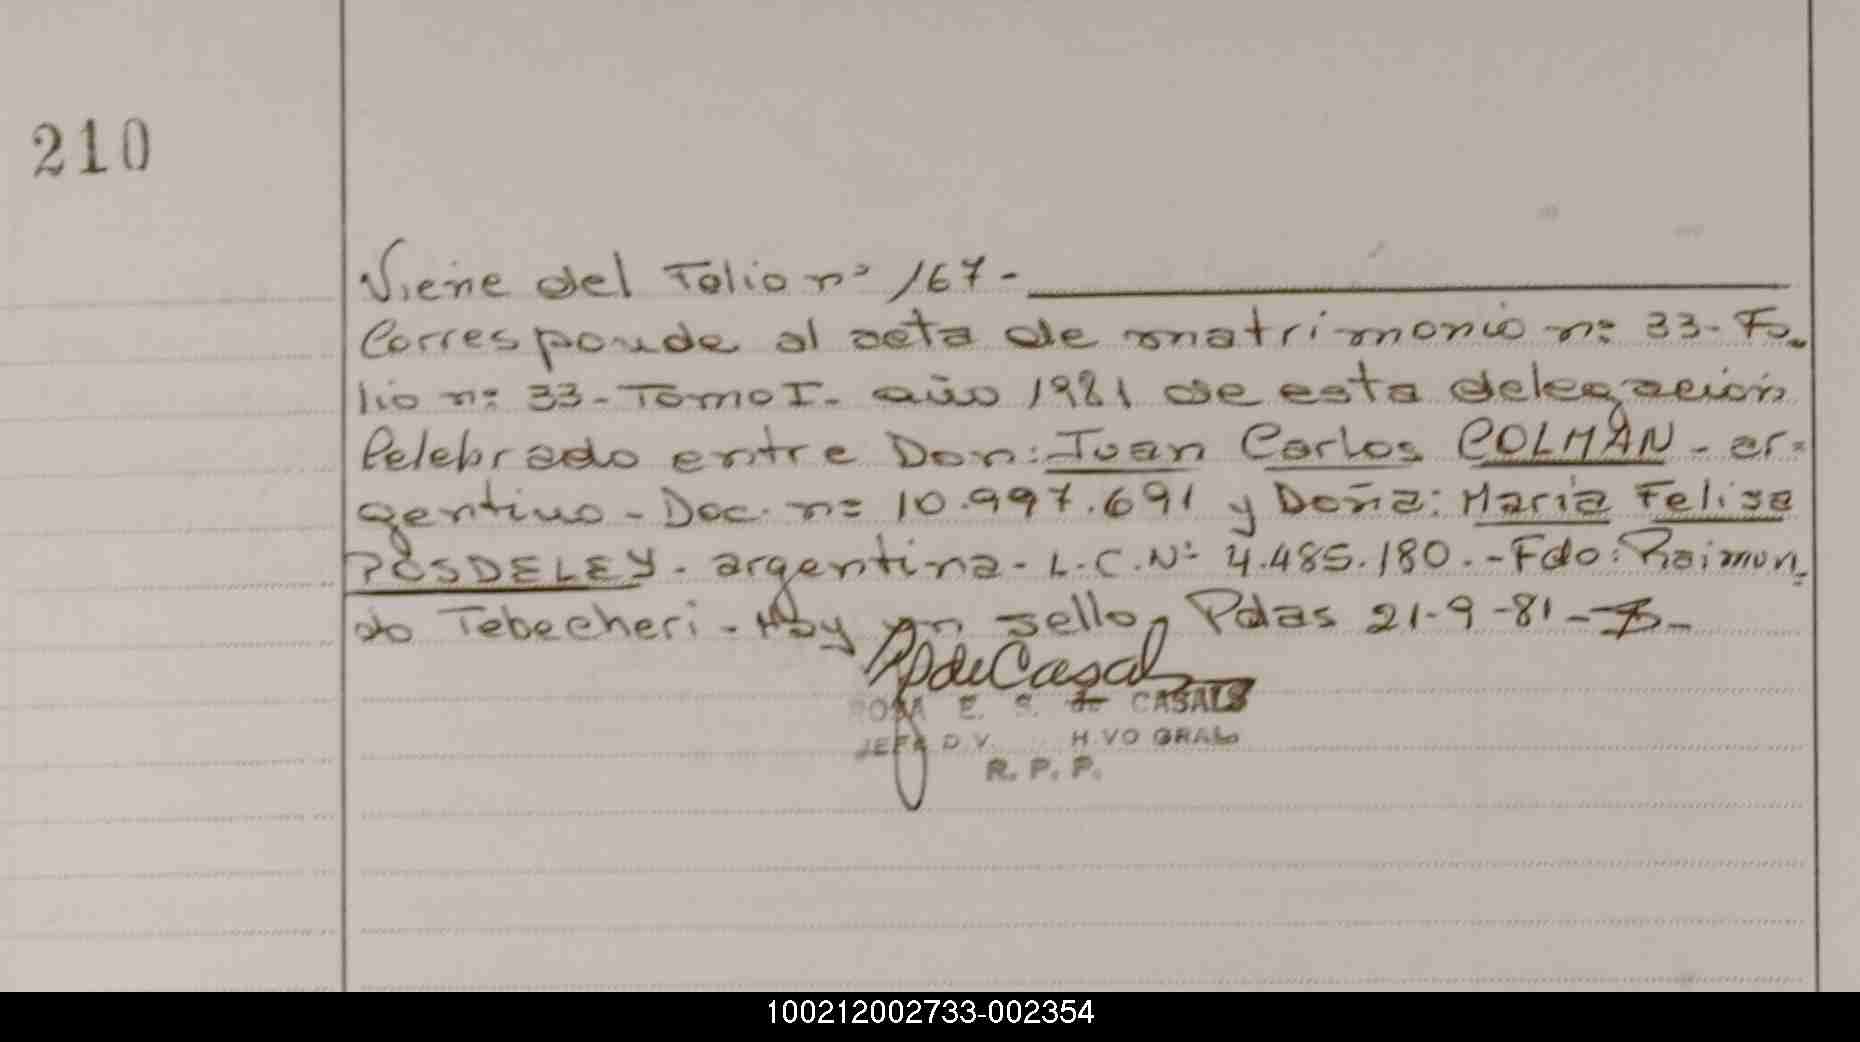 210
Viene del Folio nº 167.-
Corresponde al acta de matrimonio nº 33- Fo-
lio nº 33- Tomo I- año 1981 de esta delegación
Celebrado entre Don: Juan Carlos COLMAN - ar-
gentino - Doc. nº 10.997.691 y Doña: Maria Felisa
POSDELEY. argentina - L.C. Nº 4.485.180.- Fdo: Raimun-
do Tebecheri - Hay un sello, Pdas 21-9-81-
R de Casals
ROSA E. S. de CASALS
JEFA DIV. H.VO GRAL
R. P. P.
100212002733-002354